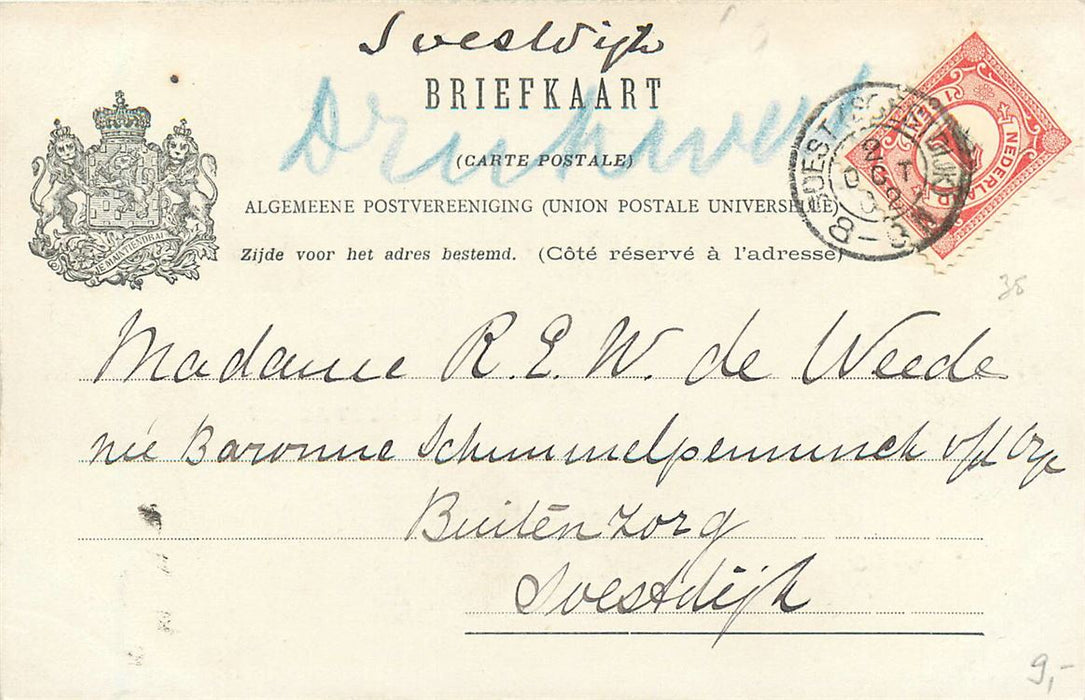 Soestdijk
BRIEFKAART
Drukwerk
(CARTE POSTALE)
ALGEMEENE POSTVEREENIGING (UNION POSTALE UNIVERSELLE)
Zijde voor het adres bestemd. (Côté réservé à l'adresse)
JE MAINTIENDRAI
NEDERLAND
CENT
8-9
35
Madame R. E. W. de Weede
née Baronne Schimmelpenninck v/d Oye
Buitenzorg
Soestdijk
9,-